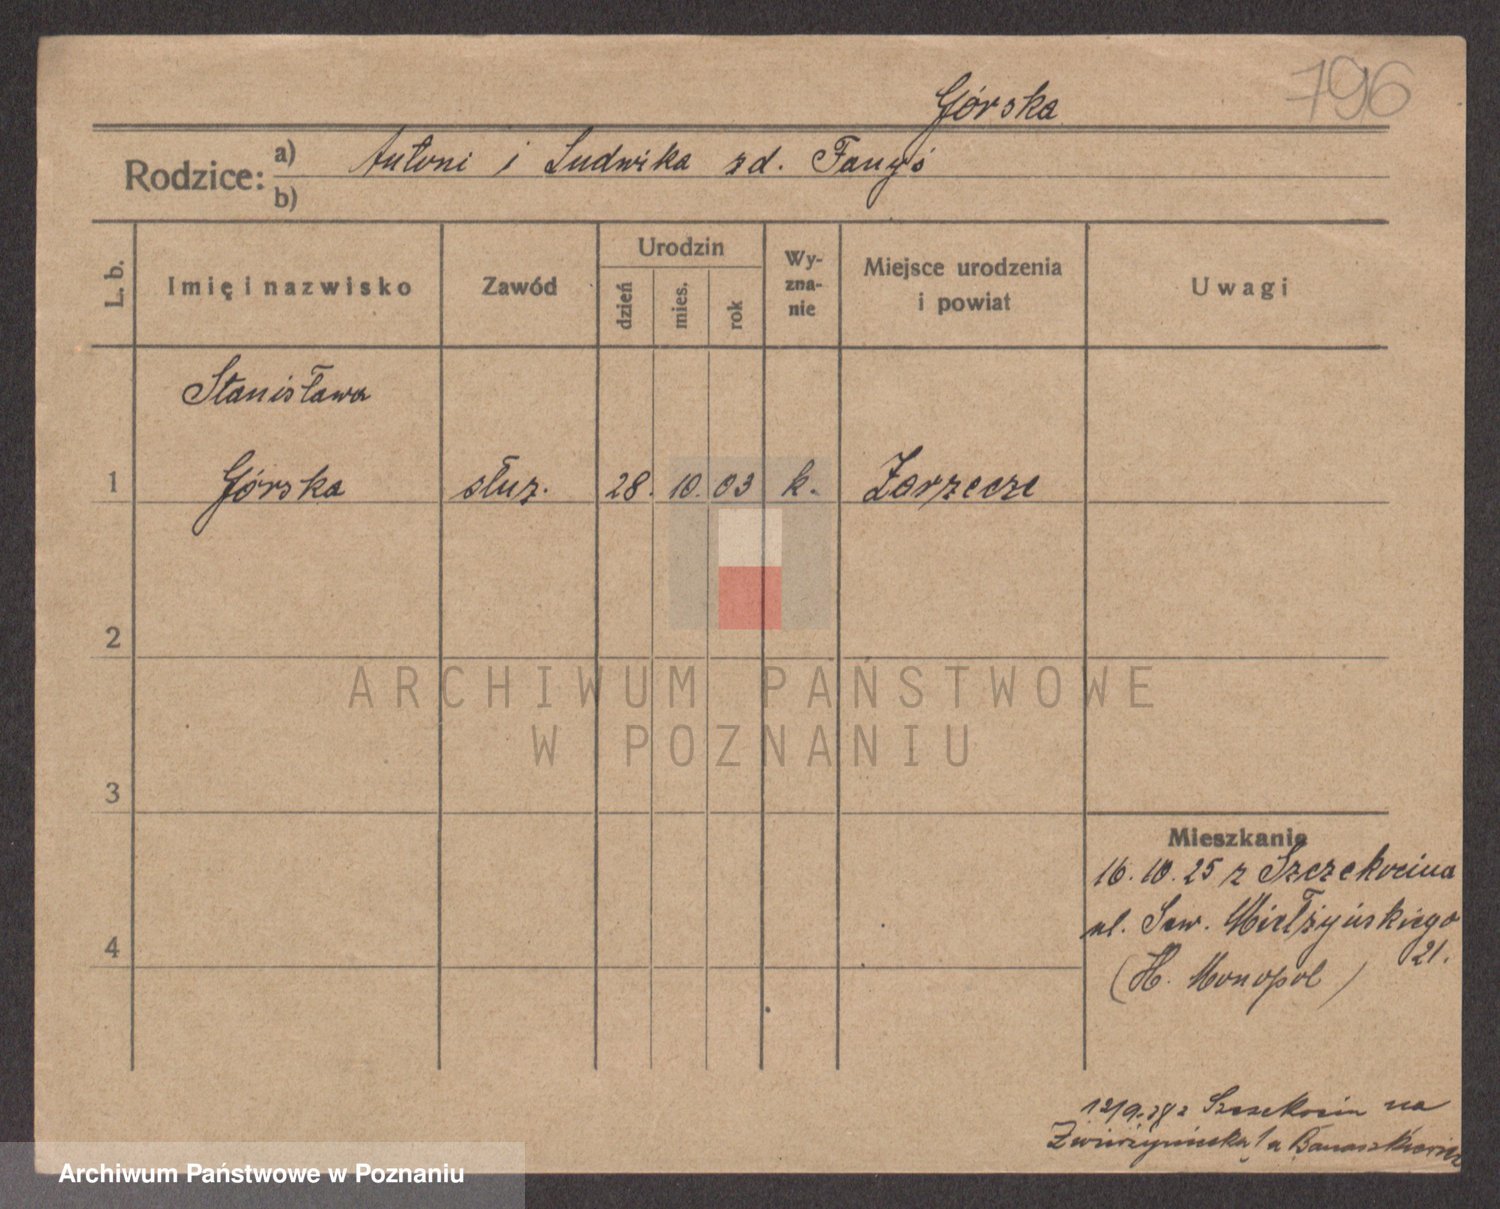 796
Górska
Rodzice: a) Antoni i Ludwika zd. Fanyś
b)
L. b.
Imię i nazwisko
Zawód
Urodzin
dzień
mies.
rok
Wy-
zna-
nie
Miejsce urodzenia
i powiat
Uwagi
Stanisława
1 Górska służ. 28. 10. 03 k. Zarzecze
2
3
4
Mieszkanie
16. 10. 25 z Szczekocina
ul. Sew. Mielżyńskiego
21.
(H. Monopol)
z Szczekocin na
ARCHIWUM PAŃSTWOWE
W POZNANIU
Archiwum Państwowe w Poznaniu